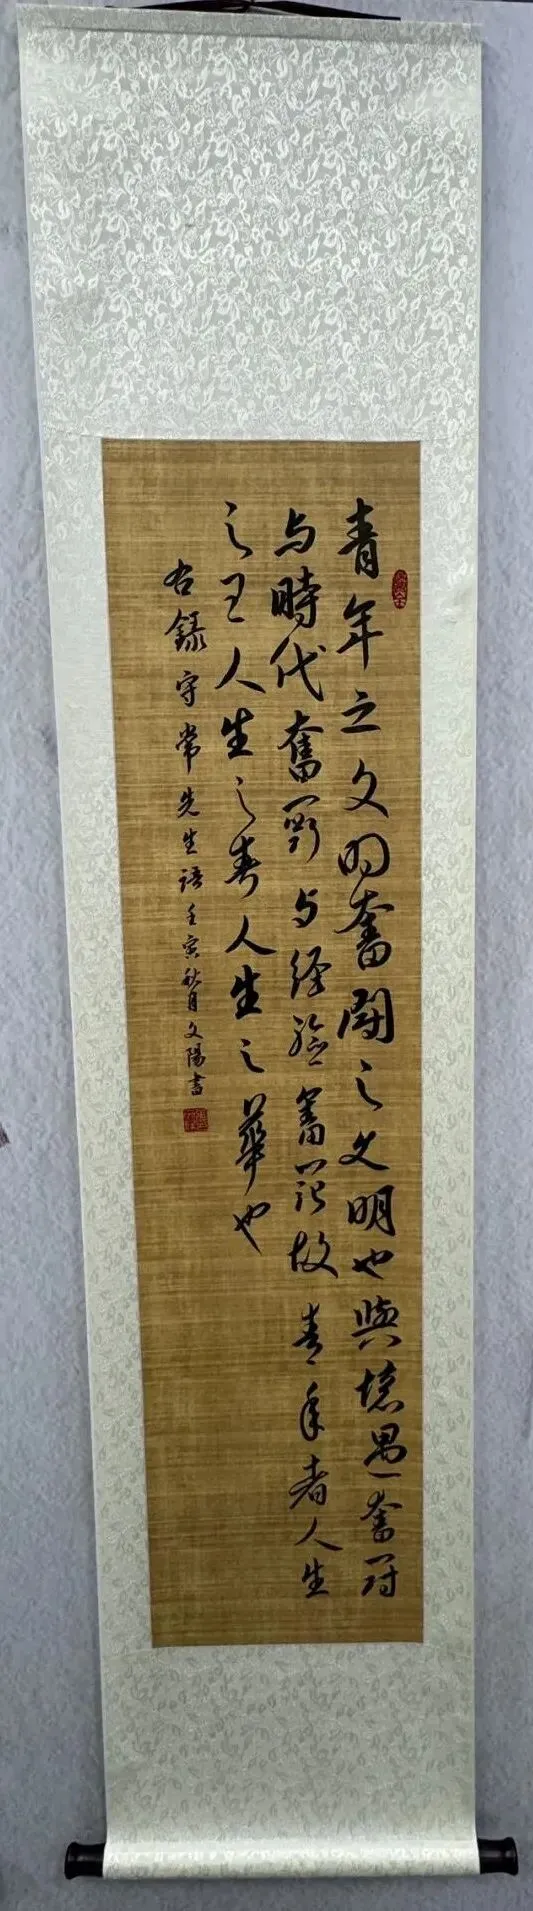 青年之文明奮鬪之文明也與境遇奮鬥
与時代奮鬥与经验奮鬥故青年者人生
之王人生之春人生之華也
右錄守常先生語壬寅秋月文陽書